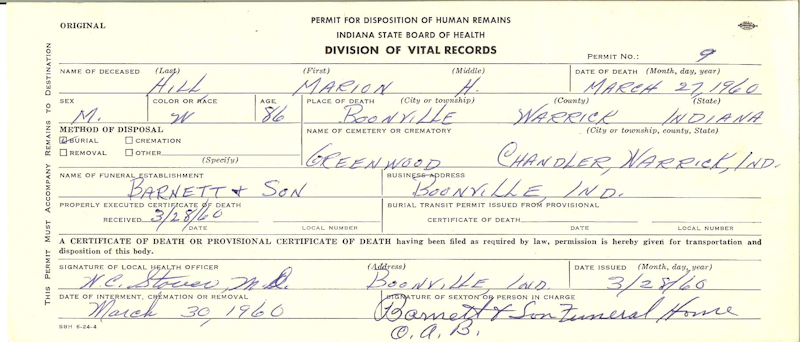 ORIGINAL
PERMIT FOR DISPOSITION OF HUMAN REMAINS
INDIANA STATE BOARD OF HEALTH
DIVISION OF VITAL RECORDS
PERMIT NO.: 9
THIS PERMIT MUST ACCOMPANY REMAINS TO DESTINATION
NAME OF DECEASED (Last) (First) (Middle) DATE OF DEATH (Month, day, year)
HILL MARION H. MARCH 27, 1960
SEX COLOR OR RACE AGE PLACE OF DEATH (City or township) (County) (State)
M. W 86 BOONVILLE WARRICK INDIANA
METHOD OF DISPOSAL NAME OF CEMETERY OR CREMATORY (City or township, county, State)
BURIAL CREMATION
REMOVAL OTHER
(Specify)
GREENWOOD CHANDLER, WARRICK, IND.
NAME OF FUNERAL ESTABLISHMENT BUSINESS ADDRESS
BARNETT & SON BOONVILLE, IND.
PROPERLY EXECUTED CERTIFICATE OF DEATH BURIAL TRANSIT PERMIT ISSUED FROM PROVISIONAL
RECEIVED 3/28/60 CERTIFICATE OF DEATH
DATE LOCAL NUMBER DATE LOCAL NUMBER
A CERTIFICATE OF DEATH OR PROVISIONAL CERTIFICATE OF DEATH having been filed as required by law, permission is hereby given for transportation and
disposition of this body.
SIGNATURE OF LOCAL HEALTH OFFICER (Address) DATE ISSUED (Month, day, year)
N.C. Stover, M.D. BOONVILLE, IND. 3/28/60
DATE OF INTERMENT, CREMATION OR REMOVAL SIGNATURE OF SEXTON OR PERSON IN CHARGE
March 30, 1960 Barnett & Son Funeral Home
O.A.B.
SBH 6-24-4